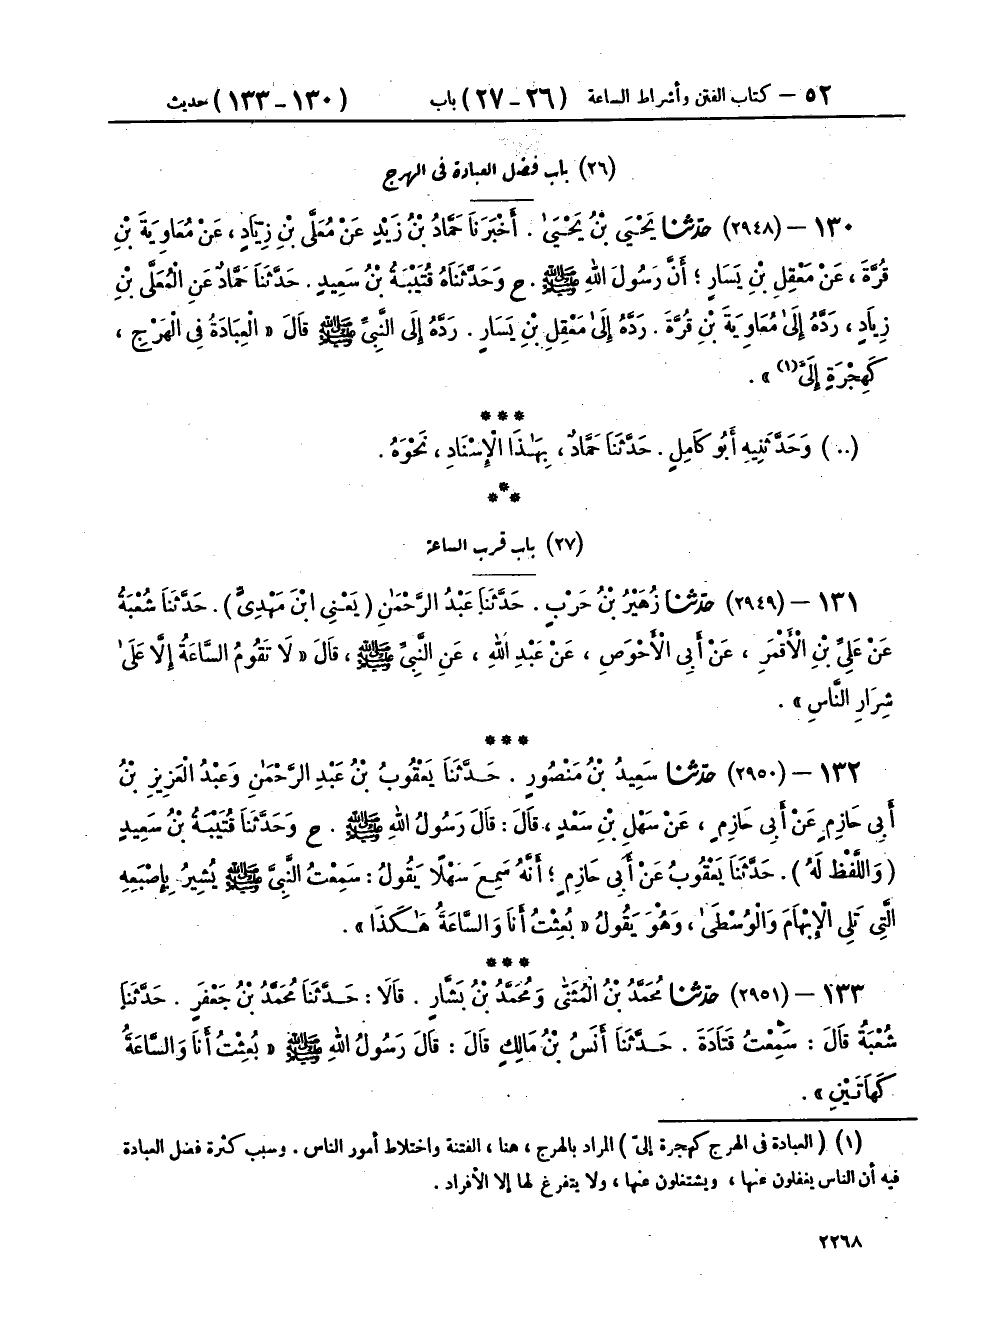 ٥٢ – كتاب الفتن وأشراط الساعة (٢٦ - ٢٧) باب (١٣٠ - ١٣٣) حديث
(٢٦) باب فضل العبادة فى الهرج
١٣٠ – (٢٩٤٨) حَدَّثَنَا يَحْيَى بْنُ يَحْيَىٰ . أَخْبَرَنَا حَمَّادُ بْنُ زَيْدٍ عَنْ مُعَلَّى بْنِ زِيَادٍ ، عَنْ مُعَاوِيَةَ بْنِ
قُرَّةَ ، عَنْ مَعْقِلِ بْنِ يَسَارٍ ؛ أَنَّ رَسُولَ اللهِ ﷺ . ح وَحَدَّثَنَاهُ قُتَيْبَةُ بْنُ سَعِيدٍ . حَدَّثَنَا حَمَّادٌ عَنِ الْمُعَلَّى بْنِ
زِيَادٍ ، رَدَّهُ إِلَىٰ مُعَاوِيَةَ بْنِ قُرَّةَ . رَدَّهُ إِلَىٰ مَعْقِلِ بْنِ يَسَارٍ . رَدَّهُ إِلَى النَّبِيِّ ﷺ قَالَ « الْعِبَادَةُ فِى الْهَرْجِ ،
كَهِجْرَةٍ إِلَىَّ (١) » .
***
(..) وَحَدَّثَنِيهِ أَبُو كَامِلٍ . حَدَّثَنَا حَمَّادٌ ، بِهَـٰذَا الْإِسْنَادِ ، نَحْوَهُ .
***
(٢٧) باب قرب الساعة
١٣١ – (٢٩٤٩) حَدَّثَنَا زُهَيْرُ بْنُ حَرْبٍ . حَدَّثَنَا عَبْدُ الرَّحْمَٰنِ ( يَعْنِى ابْنَ مَهْدِىٍّ ) . حَدَّثَنَا شُعْبَةُ
عَنْ عَلِىِّ بْنِ الْأَقْمَرِ ، عَنْ أَبِى الْأَحْوَصِ ، عَنْ عَبْدِ اللهِ ، عَنِ النَّبِيِّ ﷺ ، قَالَ « لَا تَقُومُ السَّاعَةُ إِلَّا عَلَىٰ
شِرَارِ النَّاسِ » .
***
١٣٢ – (٢٩٥٠) حَدَّثَنَا سَعِيدُ بْنُ مَنْصُورٍ . حَدَّثَنَا يَعْقُوبُ بْنُ عَبْدِ الرَّحْمَٰنِ وَعَبْدُ الْعَزِيزِ بْنُ
أَبِى حَازِمٍ عَنْ أَبِى حَازِمٍ ، عَنْ سَهْلِ بْنِ سَعْدٍ ، قَالَ : قَالَ رَسُولُ اللهِ ﷺ . ح وَحَدَّثَنَا قُتَيْبَةُ بْنُ سَعِيدٍ
( وَاللَّفْظُ لَهُ ) . حَدَّثَنَا يَعْقُوبُ عَنْ أَبِى حَازِمٍ ؛ أَنَّهُ سَمِعَ سَهْلًا يَقُولُ : سَمِعْتُ النَّبِيَّ ﷺ يُشِيرُ بِإِصْبَعِهِ
الَّتِى تَلِى الْإِبْهَامَ وَالْوُسْطَىٰ ، وَهُوَ يَقُولُ « بُعِثْتُ أَنَا وَالسَّاعَةُ هَـٰكَذَا » .
***
١٣٣ – (٢٩٥١) حَدَّثَنَا مُحَمَّدُ بْنُ الْمُثَنَّىٰ وَمُحَمَّدُ بْنُ بَشَّارٍ . قَالَا : حَدَّثَنَا مُحَمَّدُ بْنُ جَعْفَرٍ . حَدَّثَنَا
شُعْبَةُ قَالَ : سَمِعْتُ قَتَادَةَ . حَدَّثَنَا أَنَسُ بْنُ مَالِكٍ قَالَ : قَالَ رَسُولُ اللهِ ﷺ « بُعِثْتُ أَنَا وَالسَّاعَةُ
كَهَاتَيْنِ » .
(١) ( العبادة فى الهرج كهجرة إلىّ ) المراد بالهرج ، هنا ، الفتنة واختلاط أمور الناس . وسبب كثرة فضل العبادة
فيه أن الناس يغفلون عنها ، ويشتغلون عنها ، ولا يتفرغ لها إلا الأفراد .
٢٢٦٨